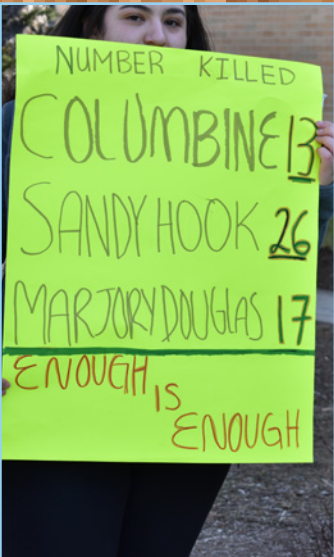 NUMBER KILLED
COLUMBINE 13
SANDY HOOK 26
MARJORY DOUGLAS 17
ENOUGH
IS
ENOUGH